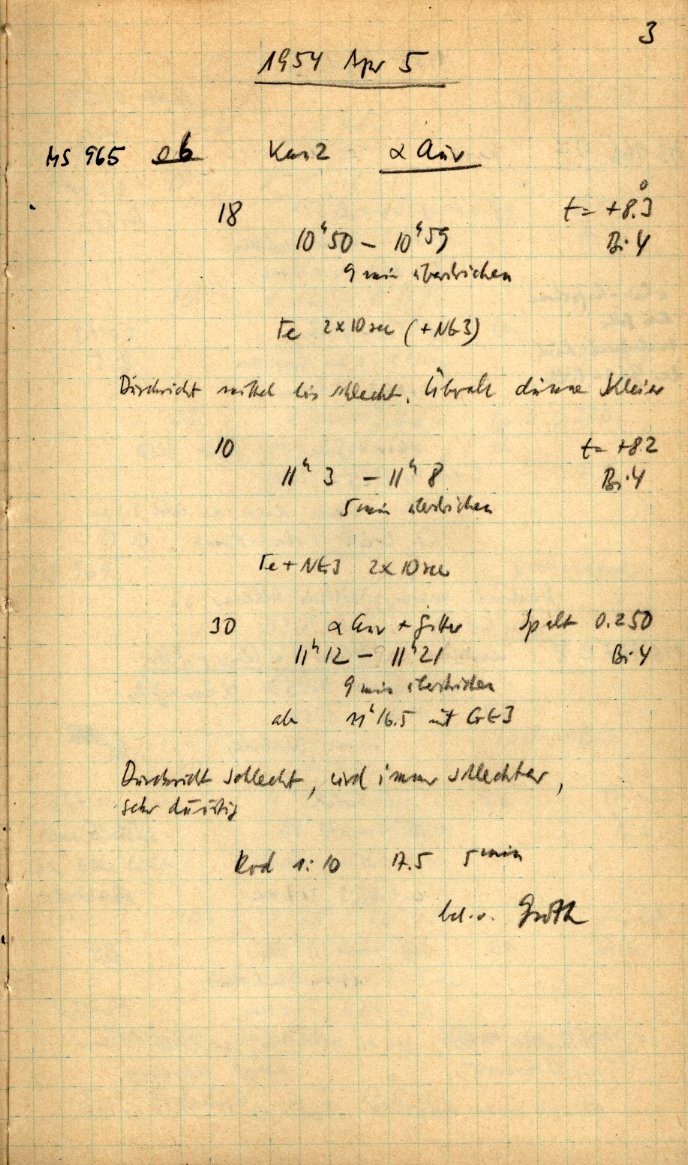 3
1954 Apr 5
MS 965 eb Kam 2 α Aur
18 t = +8.3°
10ʰ50 – 10ʰ59 Bi 4
9 min überstrichen
Fe 2x10 sec (+NG3)
Durchsicht mittel bis schlecht, überall dünne Schleier
10 t = +8.2
11ʰ 3 – 11ʰ 8 Bi 4
5 min überstrichen
Fe + NG3 2x10 sec
30 α Aur + Gitter Spalt 0.250
11ʰ12 – 11ʰ21 Bi 4
9 min überstrichen
ab 11ʰ16.5 mit GG3
Durchsicht schlecht, wird immer schlechter,
sehr dunstig
Rod 1:10 17.5 5 min
Groth